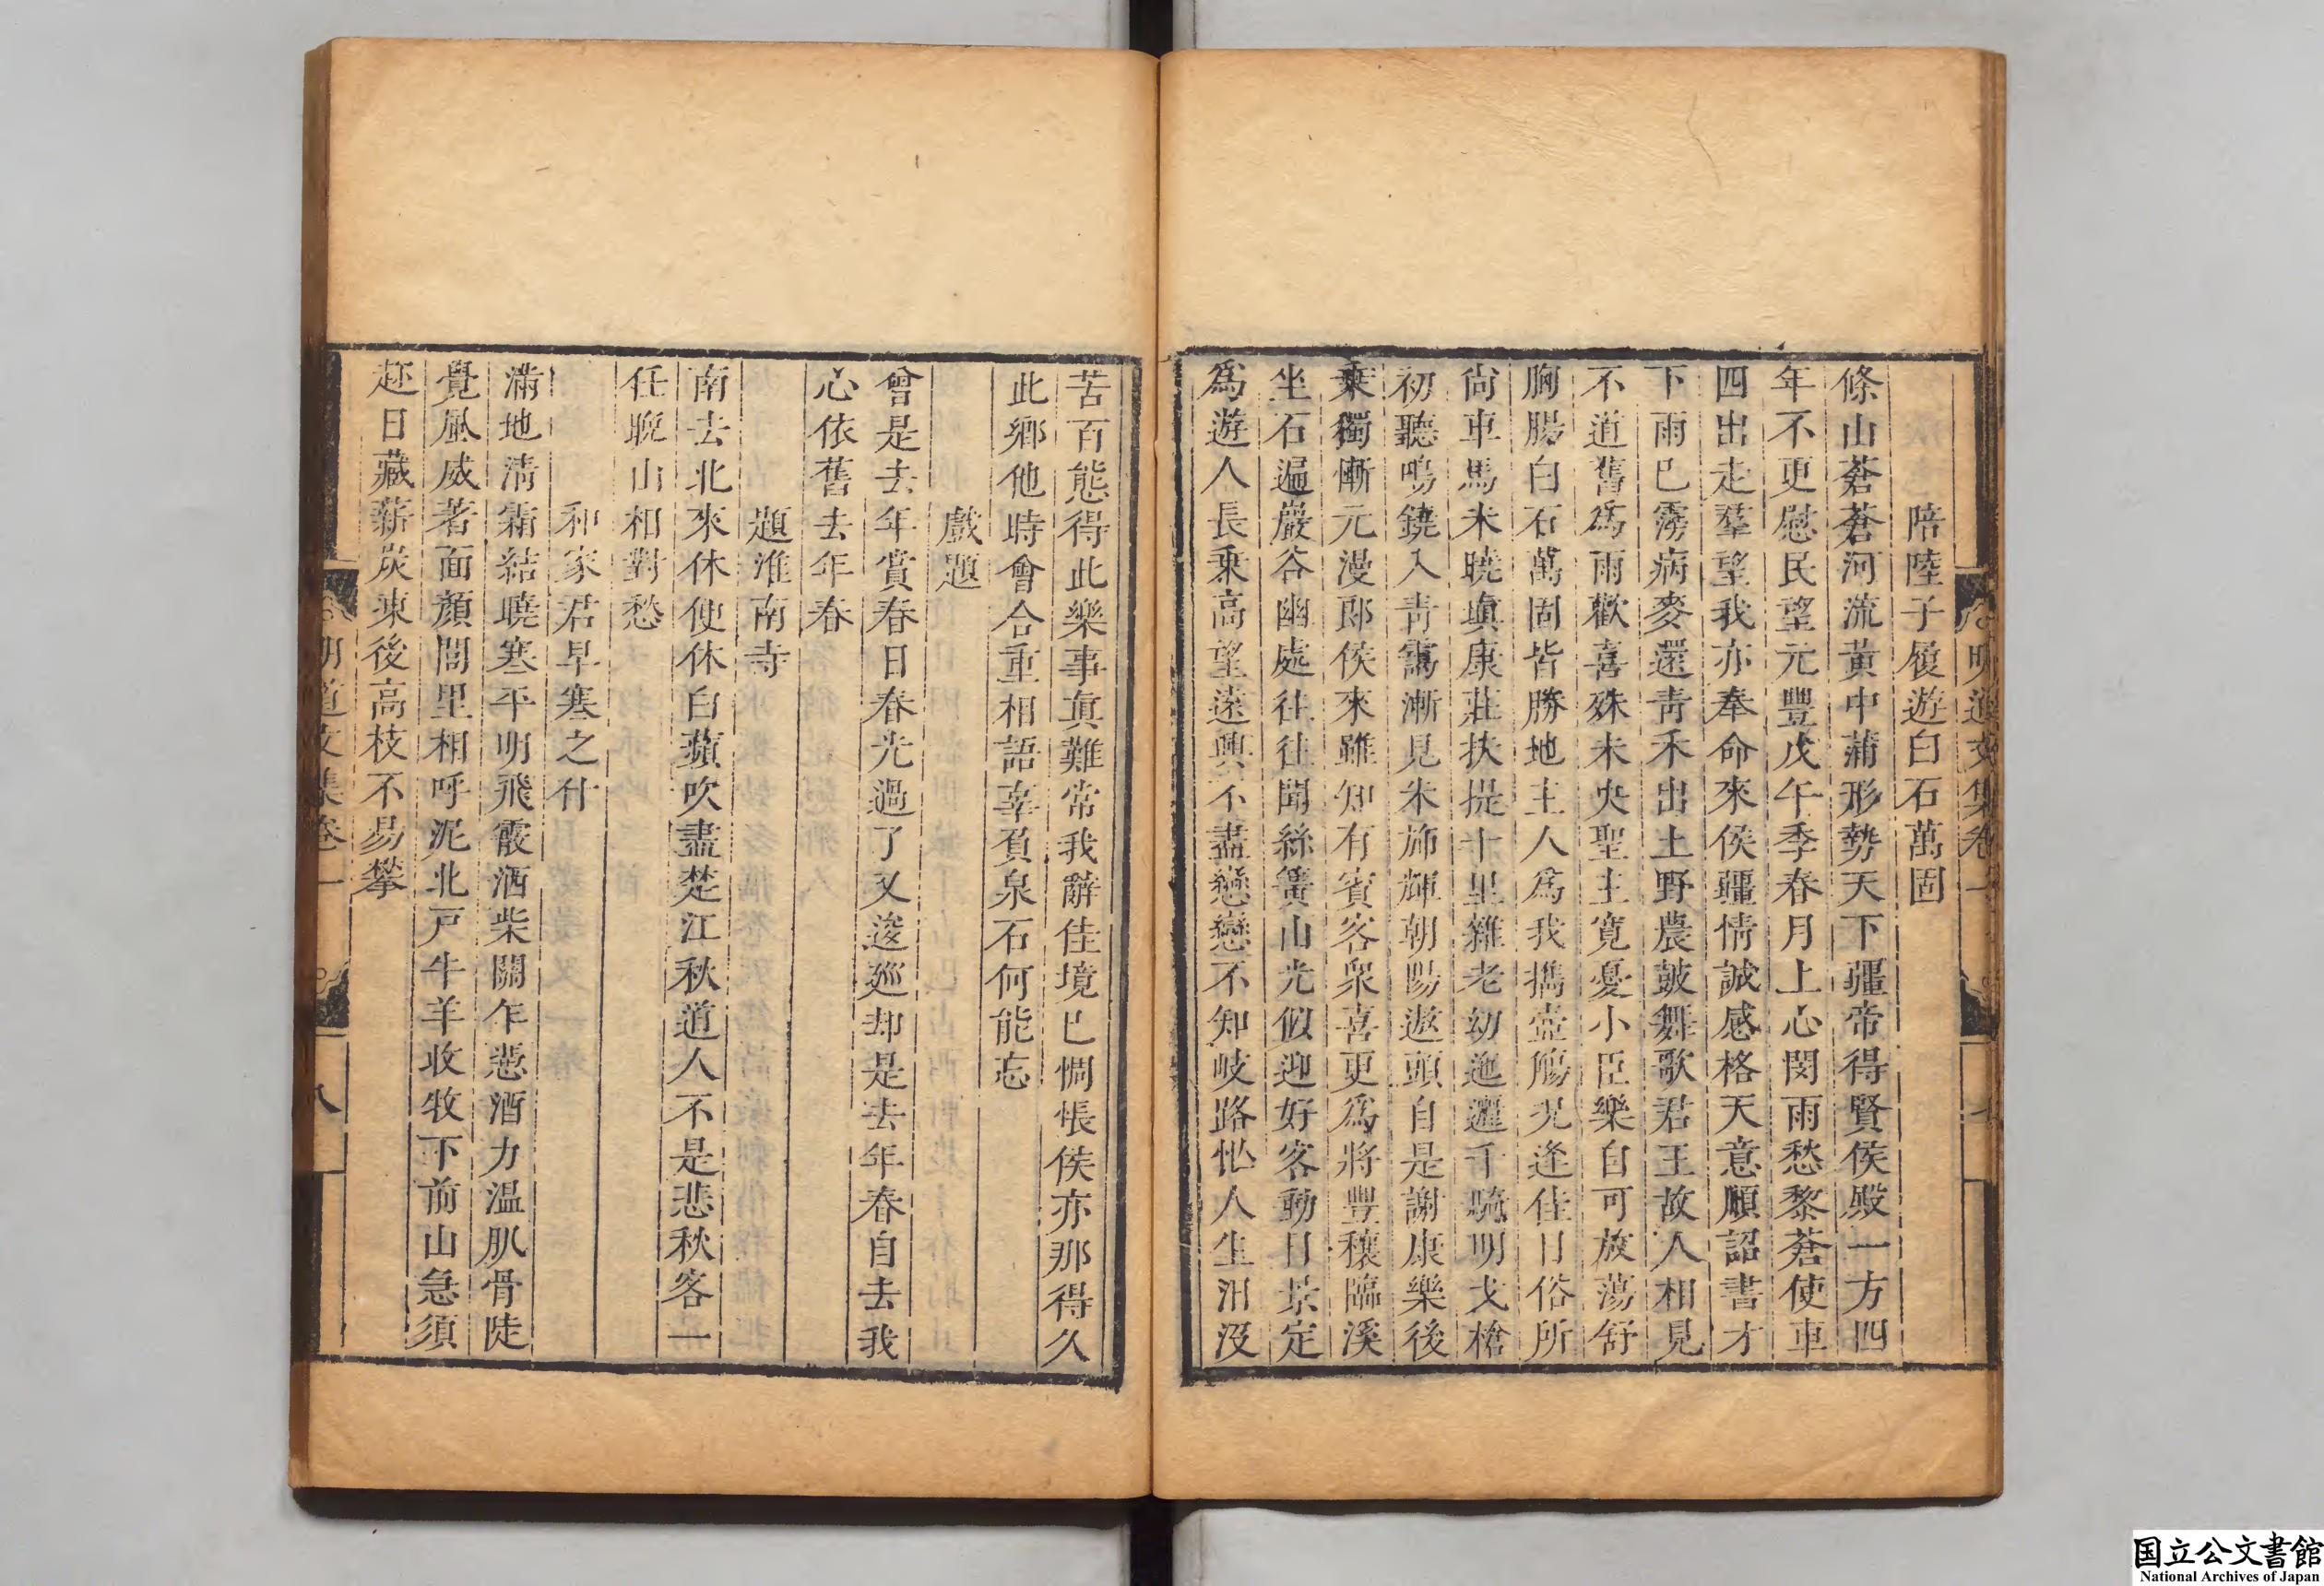 明道文集卷一　七
陪陸子履遊白石萬固
條山蒼蒼河流黃中蒲形勢天下疆帝得賢侯殿一方四
年不更慰民望元豐戊午季春月上心閔雨愁黎蒼使車
四出走羣望我亦奉命來侯疆情誠感格天意順詔書才
下雨已霶病麥還靑禾出土野農鼓舞歌君王故人相見
不道舊爲雨歡喜殊未央聖主寬憂小臣樂自可放蕩舒
胸腸白石萬固皆勝地主人爲我攜壺觴況逢佳日俗所
尙車馬未曉塡康莊扶提十里雜老幼迤邐千騎明戈槍
初聽鳴鐃入靑靄漸見朱斾輝朝陽遨頭自是謝康樂後
乗獨慚元漫郞侯來雖知有賓客衆喜更爲將豐穰臨溪
坐石遍巖谷幽處往往聞絲簧山光似迎好客動日景定
爲遊人長乗高望遠興不盡戀戀不知岐路忙人生汨沒
苦百態得此樂事眞難常我辭佳境已惆悵侯亦那得久
此鄉他時會合重相語辜負泉石何能忘
戲題
曾是去年賞春日春光過了又逡巡却是去年春自去我
心依舊去年春
題淮南寺
南去北來休使休白蘋吹盡楚江秋道人不是悲秋客一
任晚山相對愁
和家君早寒之什
滿地淸霜結曉寒平明飛霰洒柴關乍惡酒力溫肌骨陡
覺風威著面顏閭里相呼泥北戸牛羊收牧下前山急須
趂日藏薪炭凍後高枝不易攀
明道文集卷一　八
国立公文書館
National Archives of Japan